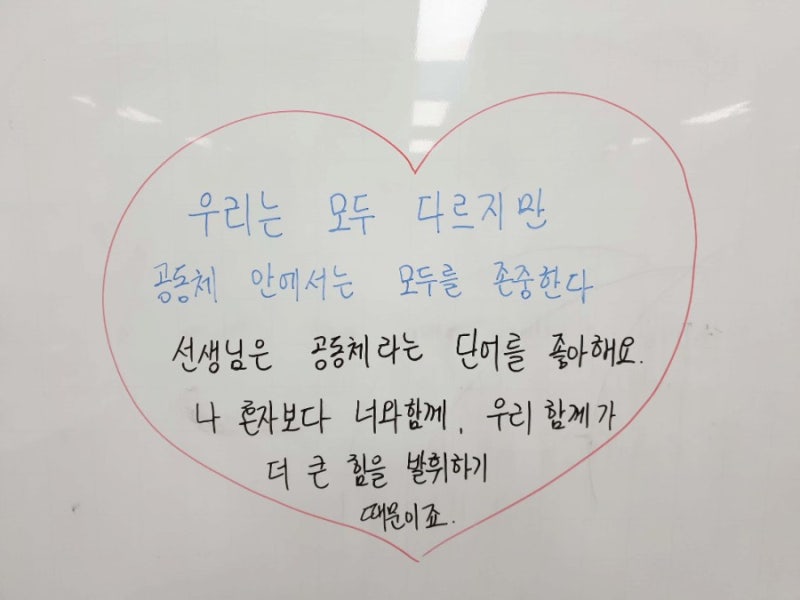 우리는 모두 다르지만
공동체 안에서는 모두를 존중한다
선생님은 공동체라는 단어를 좋아해요.
나 혼자보다 너와함께, 우리 함께가
더 큰 힘을 발휘하기
때문이죠.